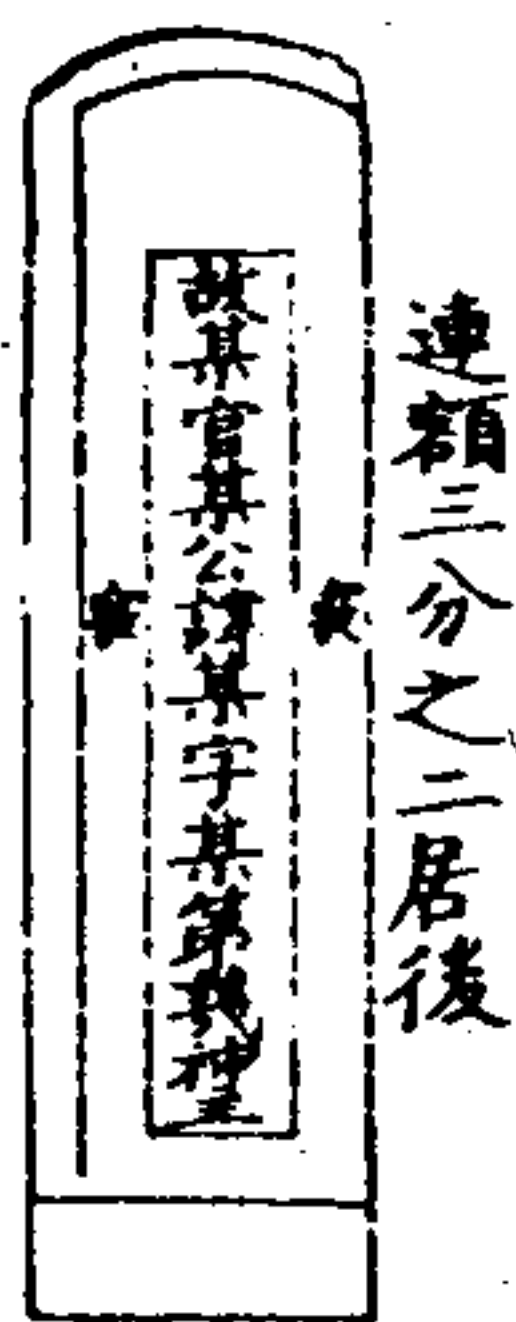 連額三分之二居後
故某官某公諱某字某第幾神主